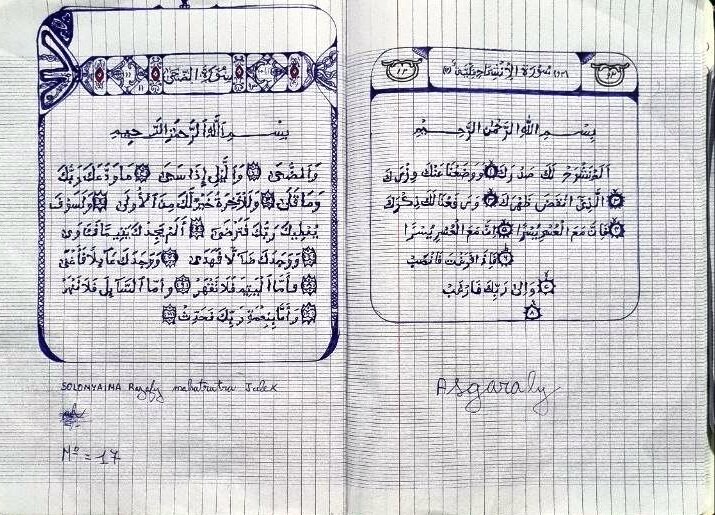 سُورَةُ الضُّحَى
بِسْمِ اللَّهِ الرَّحْمَنِ الرَّحِيمِ
وَالضُّحَى وَالَّيْلِ إِذَا سَجَى مَا وَدَّعَكَ رَبُّكَ
وَمَا قَلَى وَلَلْآخِرَةُ خَيْرٌ لَّكَ مِنَ الْأُولَى وَلَسَوْفَ
يُعْطِيكَ رَبُّكَ فَتَرْضَى أَلَمْ يَجِدْكَ يَتِيمًا فَـَٔاوَى
وَوَجَدَكَ ضَآلًّا فَهَدَى وَوَجَدَكَ عَآئِلًا فَأَغْنَى
فَأَمَّا الْيَتِيمَ فَلَا تَقْهَرْ وَأَمَّا السَّآئِلَ فَلَا تَنْهَرْ
وَأَمَّا بِنِعْمَةِ رَبِّكَ فَحَدِّثْ
SOLONYAINA Razafy mahatratra Julex
N° = 17
سُورَةُ الْإِنْشِرَاحِ مَكِّيَّة
بِسْمِ اللَّهِ الرَّحْمَنِ الرَّحِيمِ
أَلَمْ نَشْرَحْ لَكَ صَدْرَكَ وَوَضَعْنَا عَنْكَ وِزْرَكَ
الَّذِي أَنْقَضَ ظَهْرَكَ وَرَفَعْنَا لَكَ ذِكْرَكَ
فَإِنَّ مَعَ الْعُسْرِ يُسْرًا إِنَّ مَعَ الْعُسْرِ يُسْرًا
فَإِذَا فَرَغْتَ فَانْصَبْ
وَإِلَى رَبِّكَ فَارْغَبْ
٨
Asgaraly